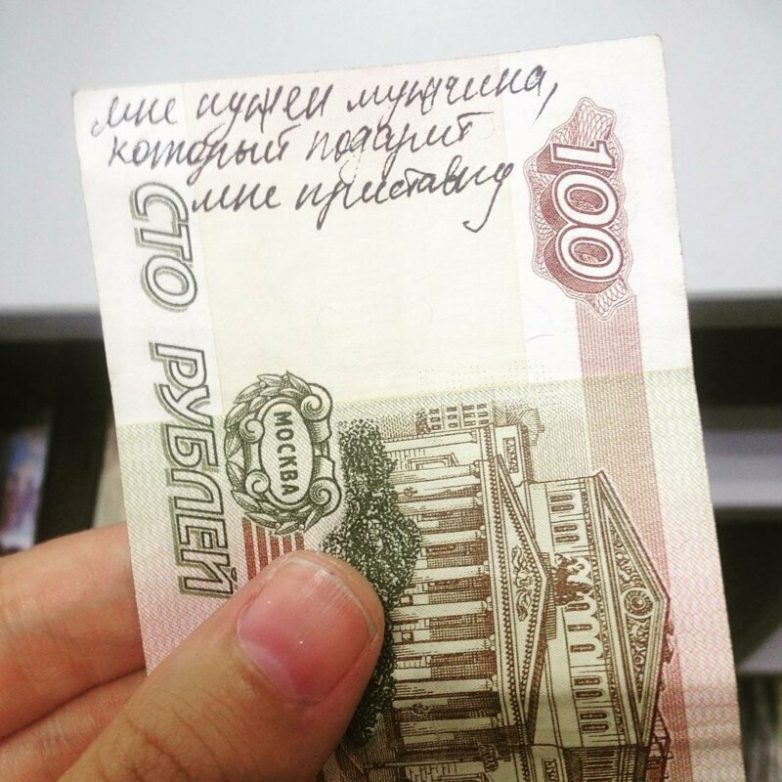 мне нужен мужчина,
который подарит
мне приставку
100
СТО РУБЛЕЙ
МОСКВА